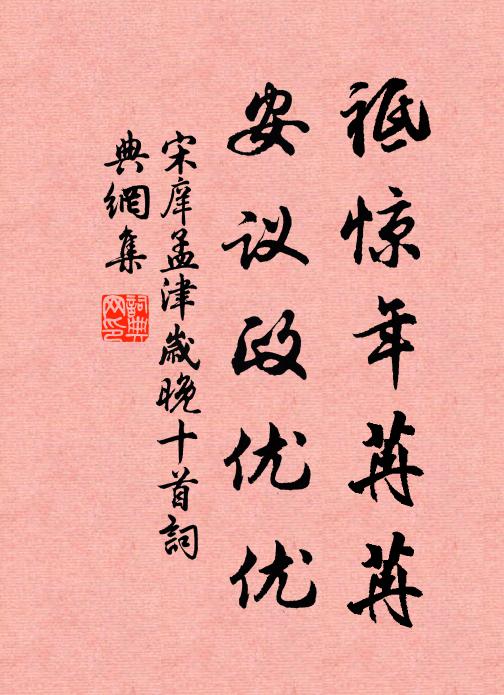 祗惊年苒苒
安议政优优
宋庠孟津歲晚十首詞
典網集
詞典
网印